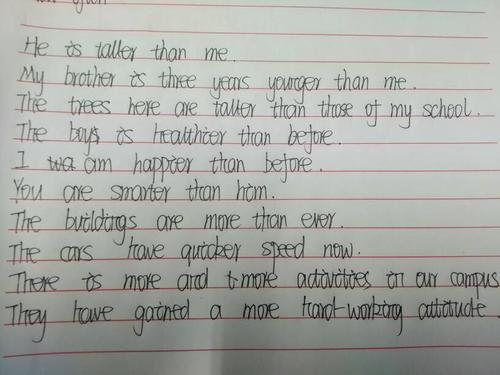 He is taller than me.
My brother is three years younger than me.
The trees here are taller than those of my school.
The boys is healthier than before.
I wa am happier than before.
You are smarter than him.
The buildings are more than ever.
The cars have quicker speed now.
There is more and more activities in our campus
They have gained a more hard-working attitude.